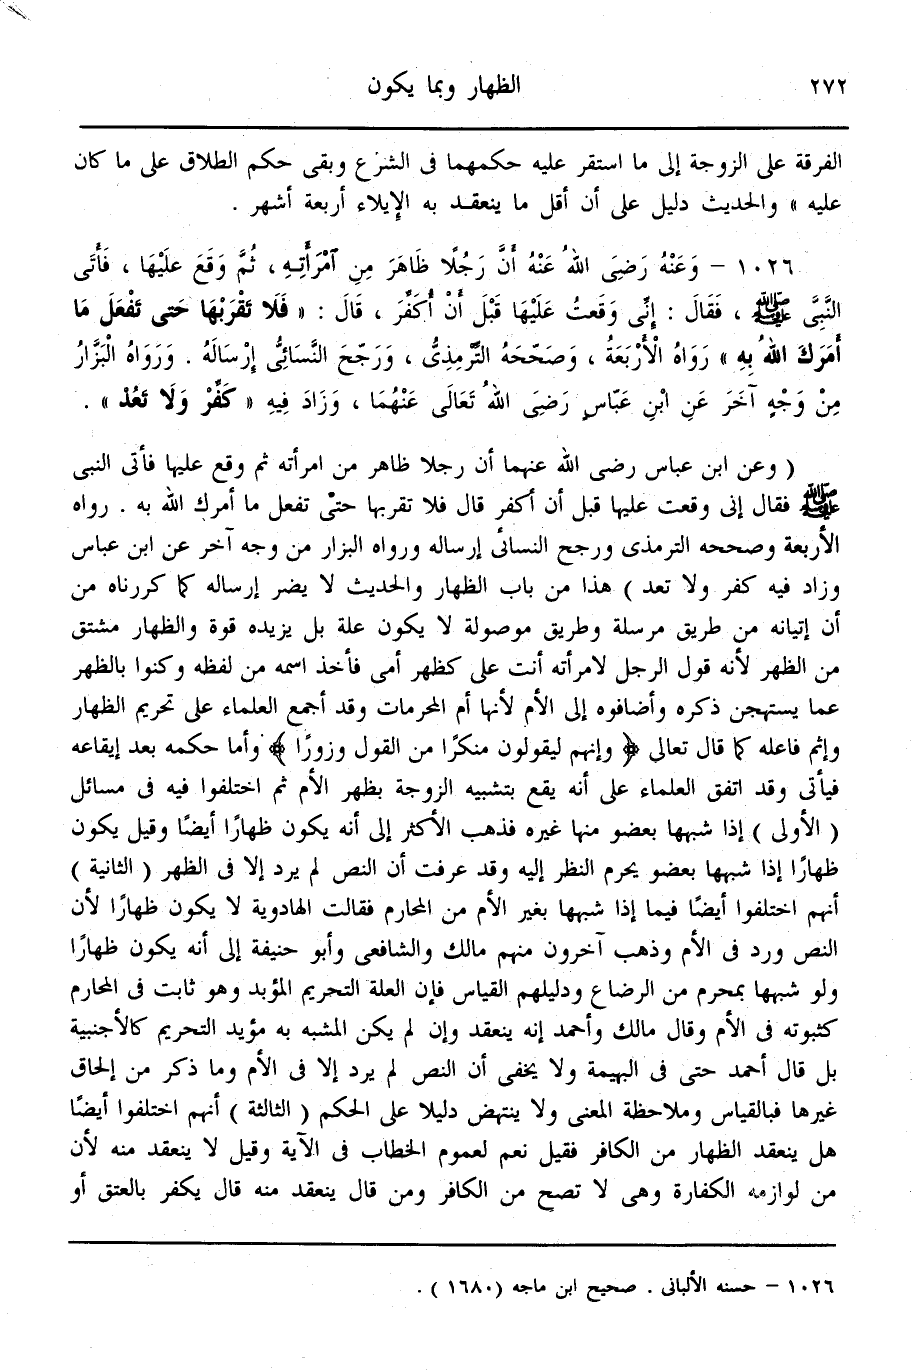 ٢٧٢ الظهار وبما يكون
الفرقة على الزوجة إلى ما استقر عليه حكمهما فى الشرع وبقى حكم الطلاق على ما كان
عليه » والحديث دليل على أن أقل ما ينعقد به الإيلاء أربعة أشهر .
١٠٢٦ – وَعَنْهُ رَضِىَ اللهُ عَنْهُ أَنَّ رَجُلًا ظَاهَرَ مِنِ ٱمْرَأَتِهِ ، ثُمَّ وَقَعَ علَيْهَا ، فَأَتَى
النَّبِىَّ ﷺ ، فَقَالَ : إِنِّى وَقَعتُ عَلَيْهَا قَبْلَ أَنْ أُكَفِّرَ ، قَالَ : « فَلَا تَقْرَبْهَا حَتى تَفْعَلَ مَا
أَمَرَكَ اللهُ بِهِ » رَوَاهُ الْأَرْبَعَةُ ، وَصَحَّحَهُ التِّرْمِذِىُّ ، وَرَجّحَ النَّسَائِىُّ إِرْسَالَهُ . وَرَوَاهُ الْبَزَّارُ
مِنْ وَجْهٍ آخَرَ عَنِ ابْنِ عَبَّاسٍ رَضِىَ اللهُ تَعَالَى عَنْهُمَا ، وَزَادَ فِيهِ « كَفِّرْ وَلَا تَعُدْ » .
( وعن ابن عباس رضى الله عنهما أن رجلا ظاهر من امرأته ثم وقع عليها فأتى النبى
ﷺ فقال إنى وقعت عليها قبل أن أكفر قال فلا تقربها حتىْ تفعل ما أمرك الله به . رواه
الأربعة وصححه الترمذى ورجح النسائى إرساله ورواه البزار من وجه آخر عن ابن عباس
وزاد فيه كفر ولا تعد ) هذا من باب الظهار والحديث لا يضر إرساله كما كررناه من
أن إتيانه من طريق مرسلة وطريق موصولة لا يكون علة بل يزيده قوة والظهار مشتق
من الظهر لأنه قول الرجل لامرأته أنت على كظهر أمى فأخذ اسمه من لفظه وكنوا بالظهر
عما يستهجن ذكره وأضافوه إلى الأم لأنها أم المحرمات وقد أجمع العلماء على تحريم الظهار
وإثم فاعله كما قال تعالى ﴿ وإنهم ليقولون منكرًا من القول وزورًا ﴾ وأما حكمه بعد إيقاعه
فيأتى وقد اتفق العلماء على أنه يقع بتشبيه الزوجة بظهر الأم ثم اختلفوا فيه فى مسائل
( الأولى ) إذا شبهها بعضو منها غيره فذهب الأكثر إلى أنه يكون ظهارًا أيضًا وقيل يكون
ظهارًا إذا شبهها بعضو يحرم النظر إليه وقد عرفت أن النص لم يرد إلا فى الظهر ( الثانية )
أنهم اختلفوا أيضًا فيما إذا شبهها بغير الأم من المحارم فقالت الهادوية لا يكون ظهارًا لأن
النص ورد فى الأم وذهب آخرون منهم مالك والشافعى وأبو حنيفة إلى أنه يكون ظهارًا
ولو شبهها بمحرم من الرضاع ودليلهم القياس فإن العلة التحريم المؤبد وهو ثابت فى المحارم
كثبوته فى الأم وقال مالك وأحمد إنه ينعقد وإن لم يكن المشبه به مؤيد التحريم كالأجنبية
بل قال أحمد حتى فى البهيمة ولا يخفى أن النص لم يرد إلا فى الأم وما ذكر من إلحاق
غيرها فبالقياس وملاحظة المعنى ولا ينتهض دليلا على الحكم ( الثالثة ) أنهم اختلفوا أيضًا
هل ينعقد الظهار من الكافر فقيل نعم لعموم الخطاب فى الآية وقيل لا ينعقد منه لأن
من لوازمه الكفارة وهى لا تصح من الكافر ومن قال ينعقد منه قال يكفر بالعتق أو
١٠٢٦ – حسنه الألبانى . صحيح ابن ماجه (١٦٨٠ ) .